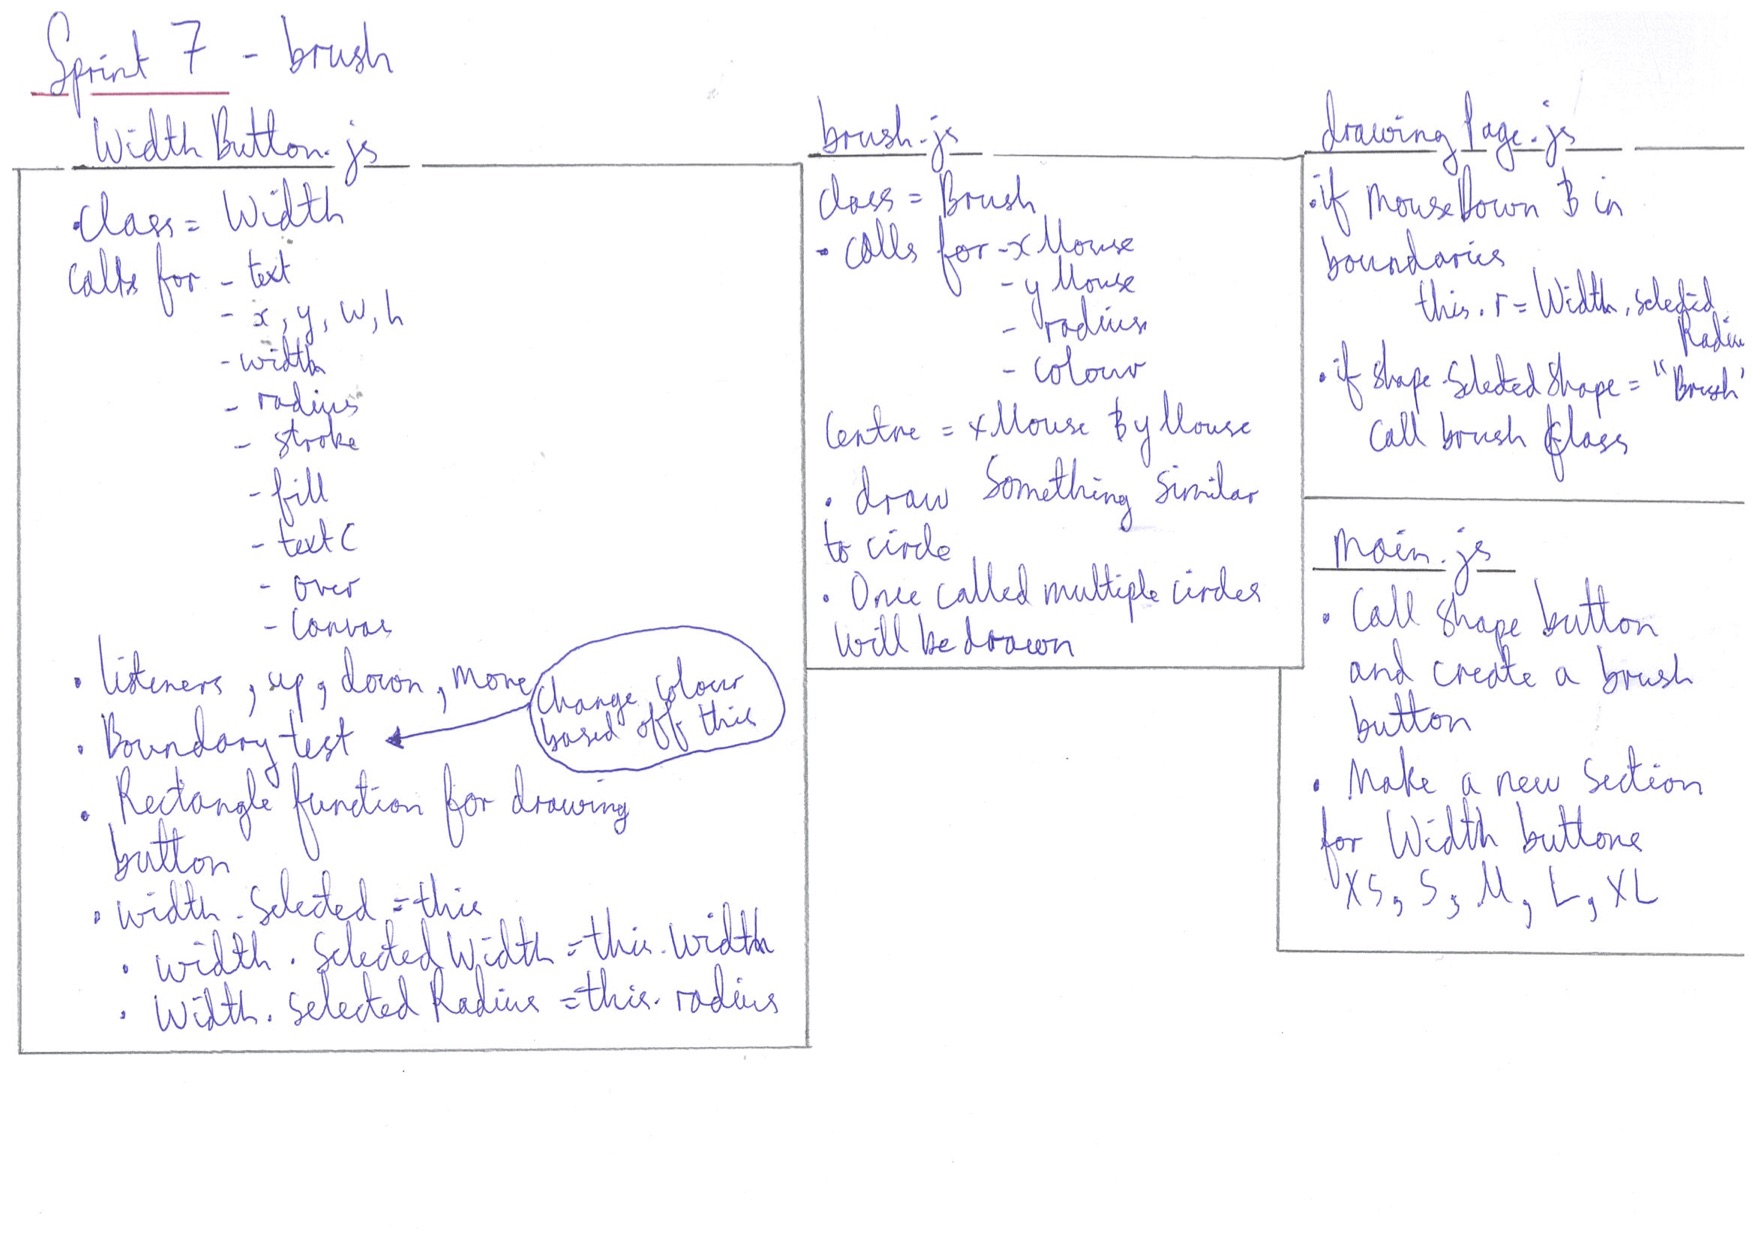 Sprint 7 - brush
Width Button.js
• Class = Width
calls for - text
- x, y, w, h
- width
- radius
- stroke
- fill
- text C
- over
- Canvas
• listeners, up, down, move
• Boundary test
change colour
based off this
• Rectangle function for drawing
button
• width.selected = this
• width.selectedWidth = this.width
• Width.selected Radius = this.radius
brush.js
class = Brush
• calls for - xMouse
- yMouse
- radius
- colour
Centre = xMouse & yMouse
• draw something similar
to circle
• Once called multiple circles
will be drawn
drawing Page.js
• if MouseDown & in
boundaries
this.r = Width.selected
Radiu
• if shape.Selected Shape = "Brush"
Call brush class
Main.js
• Call shape button
and create a brush
button
• Make a new section
for Width buttons
XS, S, M, L, XL